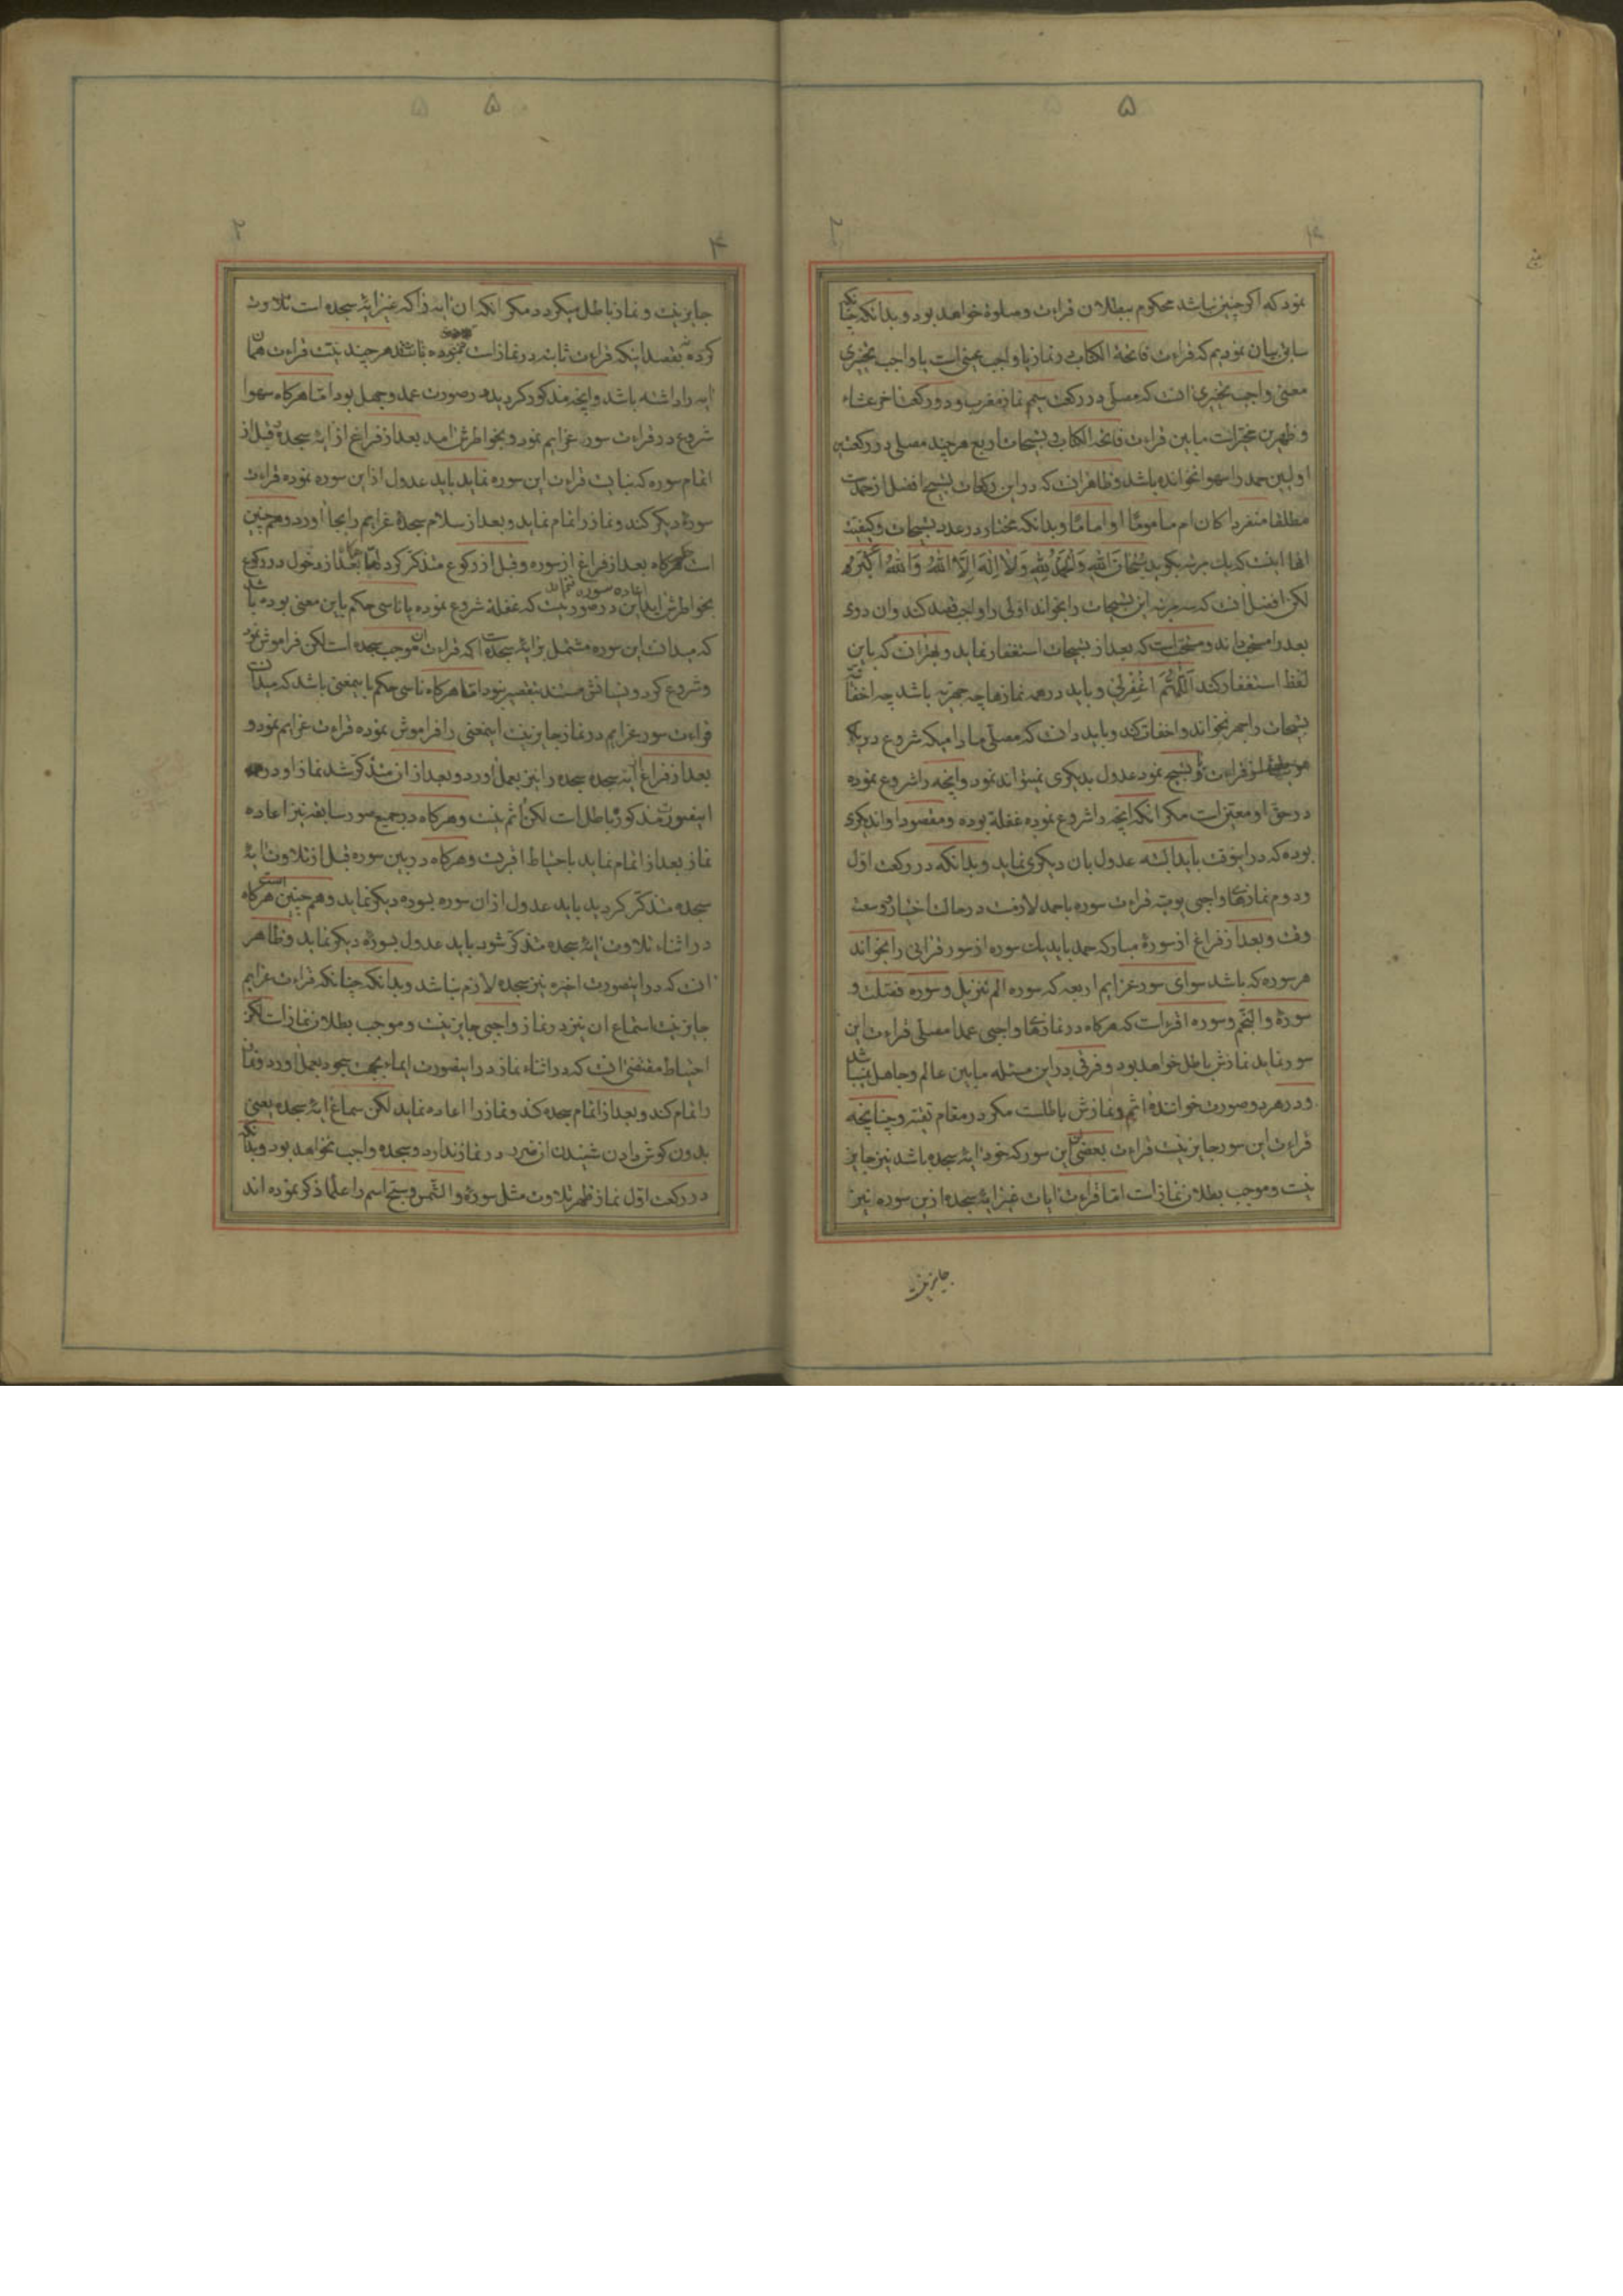 ۵
۴ ۲
نمود که اکر چنین نباشد محکوم ببطلان قراءت و صلوة خواهد بود و بدانکه چنانکه
سابق بیان نمودیم که قراءت فاتحة الکتاب در نماز یا واجب عینی است یا واجب تخییری
معنی واجب تخییری انست که مصلی در رکعت سیم نماز مغرب و دو رکعت اخر عشاء
و ظهرین مخیر است مابین قراءت فاتحة الکتاب و تسبیحات اربع هرچند مصلی در رکعتین
اولیین حمد را سهوا نخوانده باشد و ظاهر انست که در این رکعات تسبیح افضل از حمد است
مطلقا منفردا کان ام ماموما او اماما و بدانکه مختار در عدد تسبیحات و کیفیت
انها اینست که یك مرتبه بکوید سُبْحانَ اللهِ وَالْحَمْدُ لِلّهِ وَلا اِلهَ اِلَّا اللهُ وَاللهُ اَکْبَرُ و
لکن افضل انست که سه مرتبه این تسبیحات را بخواند اولی را واجب قصد کند و ان دوی
بعد را مستحب داند و مستحب است که بعد از تسبیحات استغفار نماید و بهتر ان که باین
لفظ استغفار کند اَللّهُمَّ اغْفِرْلی و باید در همه نمازها چه جهریه باشد چه اخفاتیه
تسبیحات را جهر نخواند و اخفات کند و باید دانست که مصلی مادامیکه شروع در یکی
از قراءت و تسبیح نمود عدول بدیکری نمیتواند نمود و انچه را شروع نموده
در حق او معین است مکر انکه انچه را شروع نموده غفلة بوده و مقصود او اندیکری
بوده که در اینوقت باید البته عدول بان دیکری نماید و بدانکه در رکعت اول
و دوم نمازهای واجبی یومیه قراءت سوره با حمد لازمست در حالت اختیار و سعه
وقت و بعد از فراغ از سورۀ مبارکه حمد باید یك سوره از سور قرانی را بخواند
هر سوره که باشد سوای سور عزایم اربعه که سوره الم تنزیل و سوره فصلت و
سورۀ والنجم و سوره اقرء است که هرکاه در نمازهای واجبی عمدا مصلی قراءت این
سور نماید نمازش باطل خواهد بود و فرقی در این مسئله مابین عالم و جاهل نمیباشد
و در هر دو صورت خوانندۀ اثم و نمازش باطلست مکر در مقام تقیه و چنانچه
قراءت این سور جایز نیست قراءت بعضی این سور که خود ایۀ سجده باشد نیز جایز
نیست و موجب بطلان نماز است اما قراءت ایات غیر ایۀ سجده ازین سوره نیز
جایز نیست
۵
۴ ۲
جایز نیست و نماز باطل میکردد مکر انکه ان ایه را که غیر ایۀ سجده است تلاوت
کرده بقصد اینکه قراءت ثابته در نماز است نموده باشد هرچند نیت قراءت همان
ایه را داشته باشد و انچه مذکور کردید در صورت عمد و جهل بود اما هرکاه سهوا
شروع در قراءت سور عزایم نمود و بخواطرش امد بعد از فراغ از ایۀ سجده و قبل از
اتمام سوره که نبایست قراءت این سوره نماید باید عدول از این سوره نموده قراءت
سورۀ دیکر کند و نماز را تمام نماید و بعد از سلام سجدۀ عزایم را بجا اورد و همچنین
است هرکاه بعد از فراغ از سوره و قبل از رکوع متذکر کردد اما هرکاه بعد از دخول در رکوع
بخواطرش اید اعاده سوره نماید این در صورتیست که غفلة شروع نموده یا ناسی حکم باین معنی بوده باشد
که میدانست این سوره مشتمل بر ایۀ سجده است که قراءت ان موجب سجده است لکن فراموش نمود
و شروع کرد و نسیانش مستند بتقصیر نبود اما هرکاه ناسی حکم باینمعنی باشد که میدانست
قراءت سور عزایم در نماز جایز نیست اینمعنی را فراموش نموده قراءت عزایم نمود و
بعد از فراغ از ایه سجده سجده را نیز بعمل اورد و بعد از ان متذکر شد نماز او در
اینصورت مذکوره باطل است لکن اثم نیست و هرکاه در جمیع صور سابقه نیز اعاده
نماز بعد از اتمام نماید باحتیاط اقربست و هرکاه در بین سوره قبل از تلاوت ایۀ
سجده متذکر کردید باید عدول از ان سوره بسوره دیکر نماید و همچنین است هرکاه
در اثناء تلاوت ایۀ سجده متذکر شود باید عدول بسورۀ دیکر نماید و ظاهر
انست که در اینصورت اخیره نیز سجده لازم نباشد و بدانکه چنانکه قراءت عزایم
جایز نیست استماع ان نیز در نماز واجبی جایز نیست و موجب بطلان نماز است لکن
احتیاط مقتضی انست که در اثناء نماز در اینصورت ایماء بجهت سجود بعمل اورد و نماز
را تمام کند و بعد از اتمام سجده کند و نماز را اعاده نماید لکن سماع ایۀ سجده یعنی
بدون کوش دادن شنیدن ان ضرر در نماز ندارد و سجده واجب نخواهد بود و بدانکه
در رکعت اول نماز ظهر تلاوت مثل سورۀ والشمس و سبح اسم را علما ذکر نموده اند